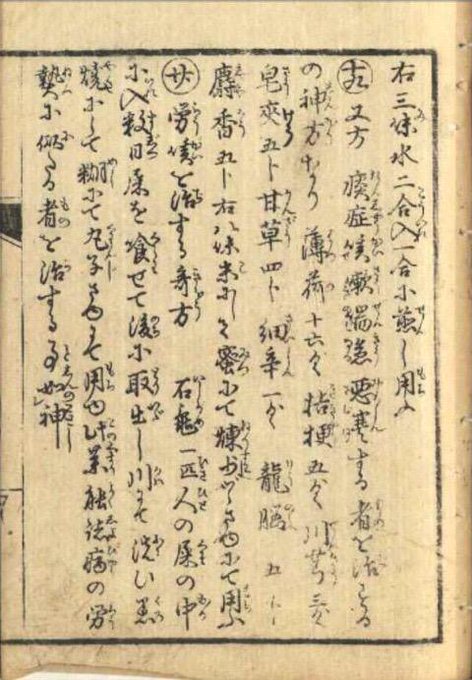 右三味水二合入一合に煎じ用ゆ
十九 又方 痰症咳嗽喘急悪寒する者を治する
の神方なり 薄荷十六匁 桔梗五匁 川芎三匁
皂莢五卜 甘草四卜 細辛一匁 龍脳五卜
麝香五卜右八味末にして蜜にて煉少づゝさゆにて用ふ
廿 労咳を治する奇方 石亀一匹人の屎の中
に入数日屎を喰せて後に取出し川にて洗ひ黒
焼にして糊にて丸子さゆにて用ゆ此薬能諸病の労
熱に似たる者を治する事如神